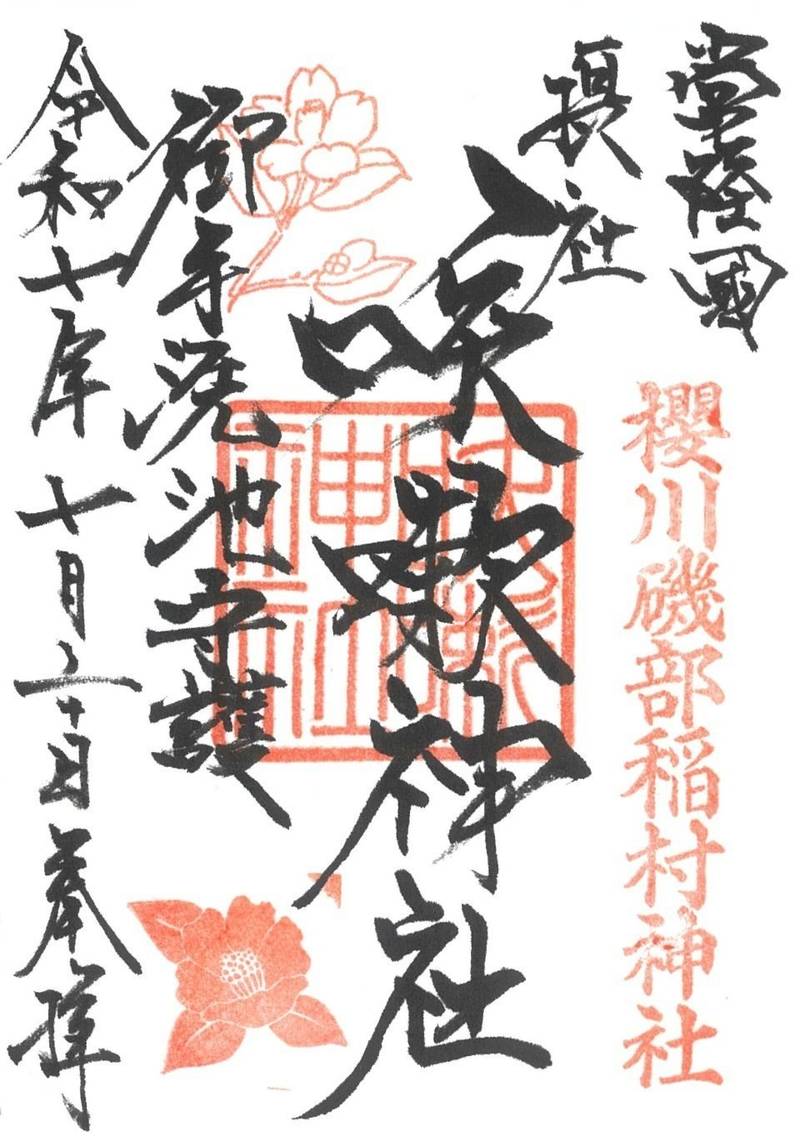 常陸國
櫻川磯部稲村神社
摂社
咲神社
御手洗池守護
令和七年 七月三十日 奉拝